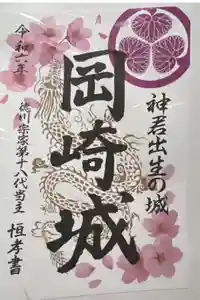 神君出生の城
岡崎城
令和六年
徳川宗家第十八代当主
恒孝書